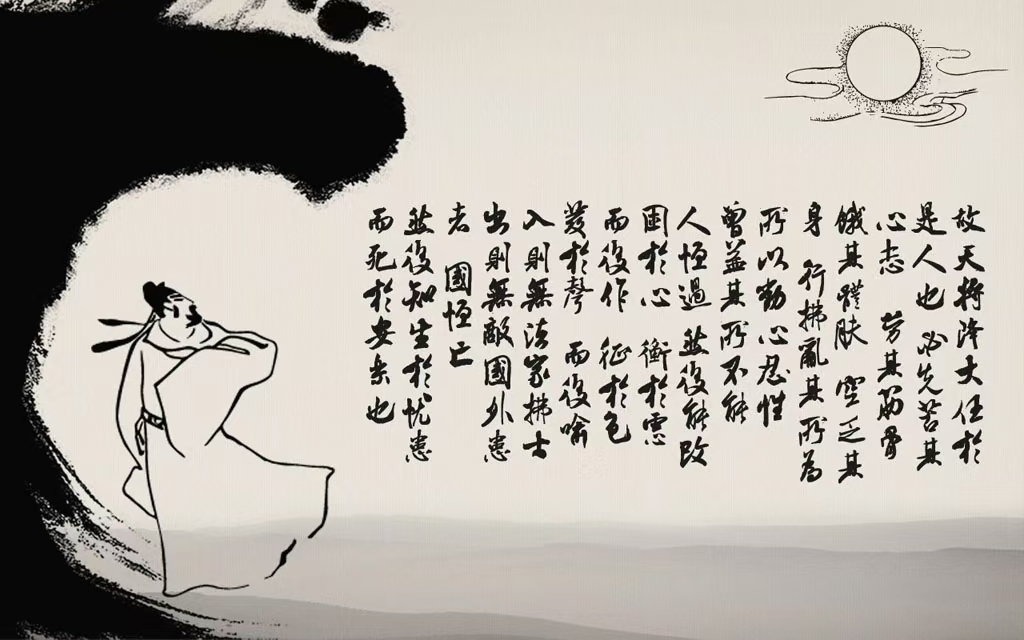 故天将降大任於
是人也 必先苦其
心志 劳其筋骨
餓其體膚 空乏其
身 行拂亂其所為
所以動心忍性
曾益其所不能
人恒過 然後能改
困於心 衡於慮
而後作 征於色
發於聲 而後喻
入則無法家拂士
出則無敵國外患
者 國恒亡
然後知生於忧患
而死於安樂也